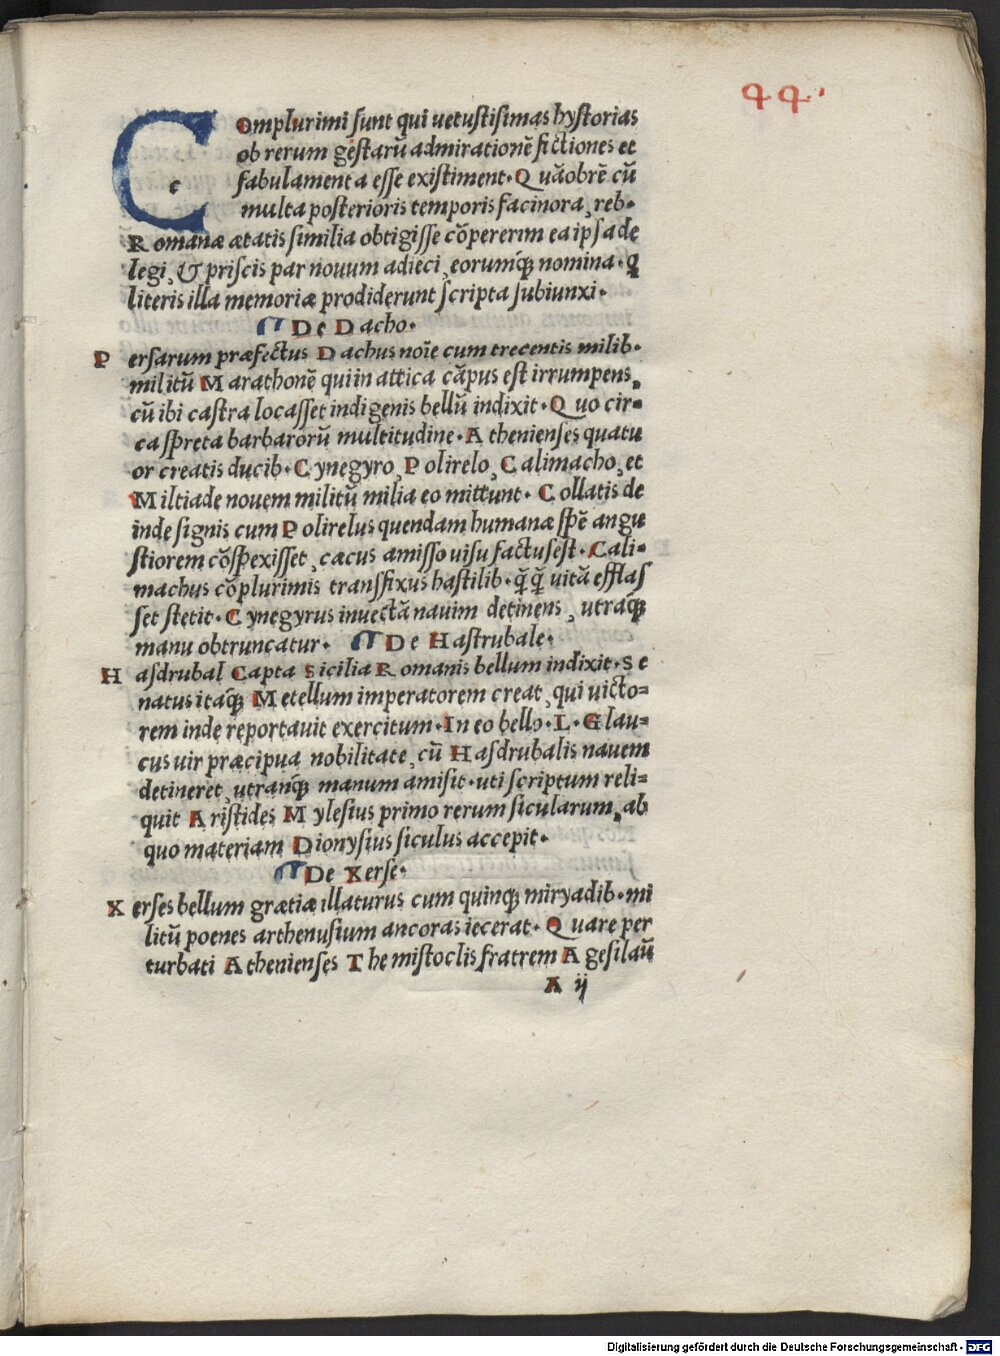 44.
Complurimi sunt qui uetustisimas hystorias
ob rerum gestarū admirationē fictiones et
fabulamenta esse existiment. Quāobrē cū
c
multa posterioris temporis facinora, reb.
Romanæ ætatis similia obtigisse cōpererim ea ipsa de
legi, & priscis par nouum adieci, eorumq̃ nomina. q̨
literis illa memoriæ prodiderunt scripta subiunxi.
De Dacho.
Persarum præfectus Dachus noīe cum trecentis milib.
militū Marathonē qui in attica cāpus est irrumpens,
cū ibi castra locasset indigenis bellū indixit. Quo cir-
ca spreta barbarorū multitudine. Athenienses quatu
or creatis ducib. Cynegyro, Polirelo, Calimacho, et
Miltiade nouem militū milia eo mittunt. Collatis de
inde signis cum Polirelus quendam humanæ spē angu
stiorem cōspexisset, cæcus amisso uisu factus est. Cali-
machus cōplurimis transfixus hastilib. q̄q̄ uitā efflas
set stetit. Cynegyrus inuectā nauim detinens, utraq̃
manu obtruncatur. De Hastrubale.
Hasdrubal Capta Sicilia Romanis bellum indixit. Se
natus itaq̃ Metellum imperatorem creat, qui uicto=
rem inde reportauit exercitum. In eo bello. L. Glau=
cus uir præcipua nobilitate, cū Hasdrubalis nauem
detineret, utranq̃ manum amisit. uti scriptum reli=
quit Aristides Mylesius primo rerum sicularum, ab
quo materiam Dionysius siculus accepit.
De Xerse.
Xerses bellum grætiæ illaturus cum quinq̃ miryadib. mi
litū poenes arthenusium ancoras iecerat. Quare per
turbati Athenienses Themistoclis fratrem Agesilaū
A ij
Digitalisierung gefördert durch die Deutsche Forschungsgemeinschaft - DFG